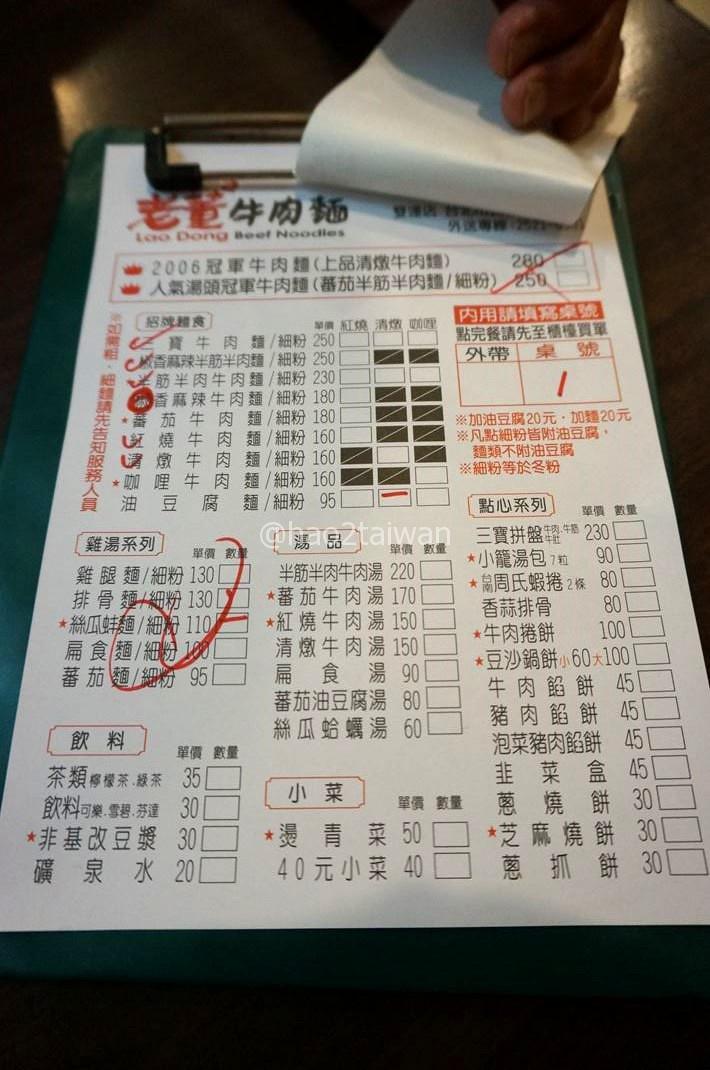 老董牛肉麵
Lao Dong Beef Noodles
雙連店
外送專線:2521-
2006冠軍牛肉麵(上品清燉牛肉麵) 280
人氣湯頭冠軍牛肉麵(蕃茄半筋半肉麵/細粉) 250
※如需粗、細麵請先告知服務人員
招牌麵食 單價 紅燒 清燉 咖哩
三寶牛肉麵/細粉 250
椒香麻辣半筋半肉麵/細粉 250
半筋半肉牛肉麵/細粉 230
椒香麻辣牛肉麵/細粉 180
★蕃茄牛肉麵/細粉 180
★紅燒牛肉麵/細粉 160
清燉牛肉麵/細粉 160
★咖哩牛肉麵/細粉 160
油豆腐麵/細粉 95
內用請填寫桌號
點完餐請先至櫃檯買單
外帶 桌號
1
※加油豆腐20元.加麵20元
※凡點細粉皆附油豆腐,
麵類不附油豆腐
※細粉等於冬粉
雞湯系列 單價 數量
雞腿麵/細粉 130
排骨麵/細粉 130
★絲瓜蚌麵/細粉 110
扁食麵/細粉 100
蕃茄麵/細粉 95
飲料 單價 數量
茶類 檸檬茶.綠茶 35
飲料 可樂.雪碧.芬達 30
★非基改豆漿 30
礦泉水 20
@hae2taiwan
湯品 單價 數量
半筋半肉牛肉湯 220
★蕃茄牛肉湯 170
★紅燒牛肉湯 150
清燉牛肉湯 150
扁食湯 90
蕃茄油豆腐湯 80
絲瓜蛤蠣湯 60
小菜 單價 數量
★燙青菜 50
40元小菜 40
點心系列 單價 數量
三寶拼盤 牛肉.牛筋 牛肚 230
★小籠湯包 7粒 90
★台南周氏蝦捲 2條 80
香蒜排骨 80
★牛肉捲餅 100
★豆沙鍋餅 小60 大100
牛肉餡餅 45
豬肉餡餅 45
泡菜豬肉餡餅 45
韭菜盒 45
蔥燒餅 30
★芝麻燒餅 30
蔥抓餅 30